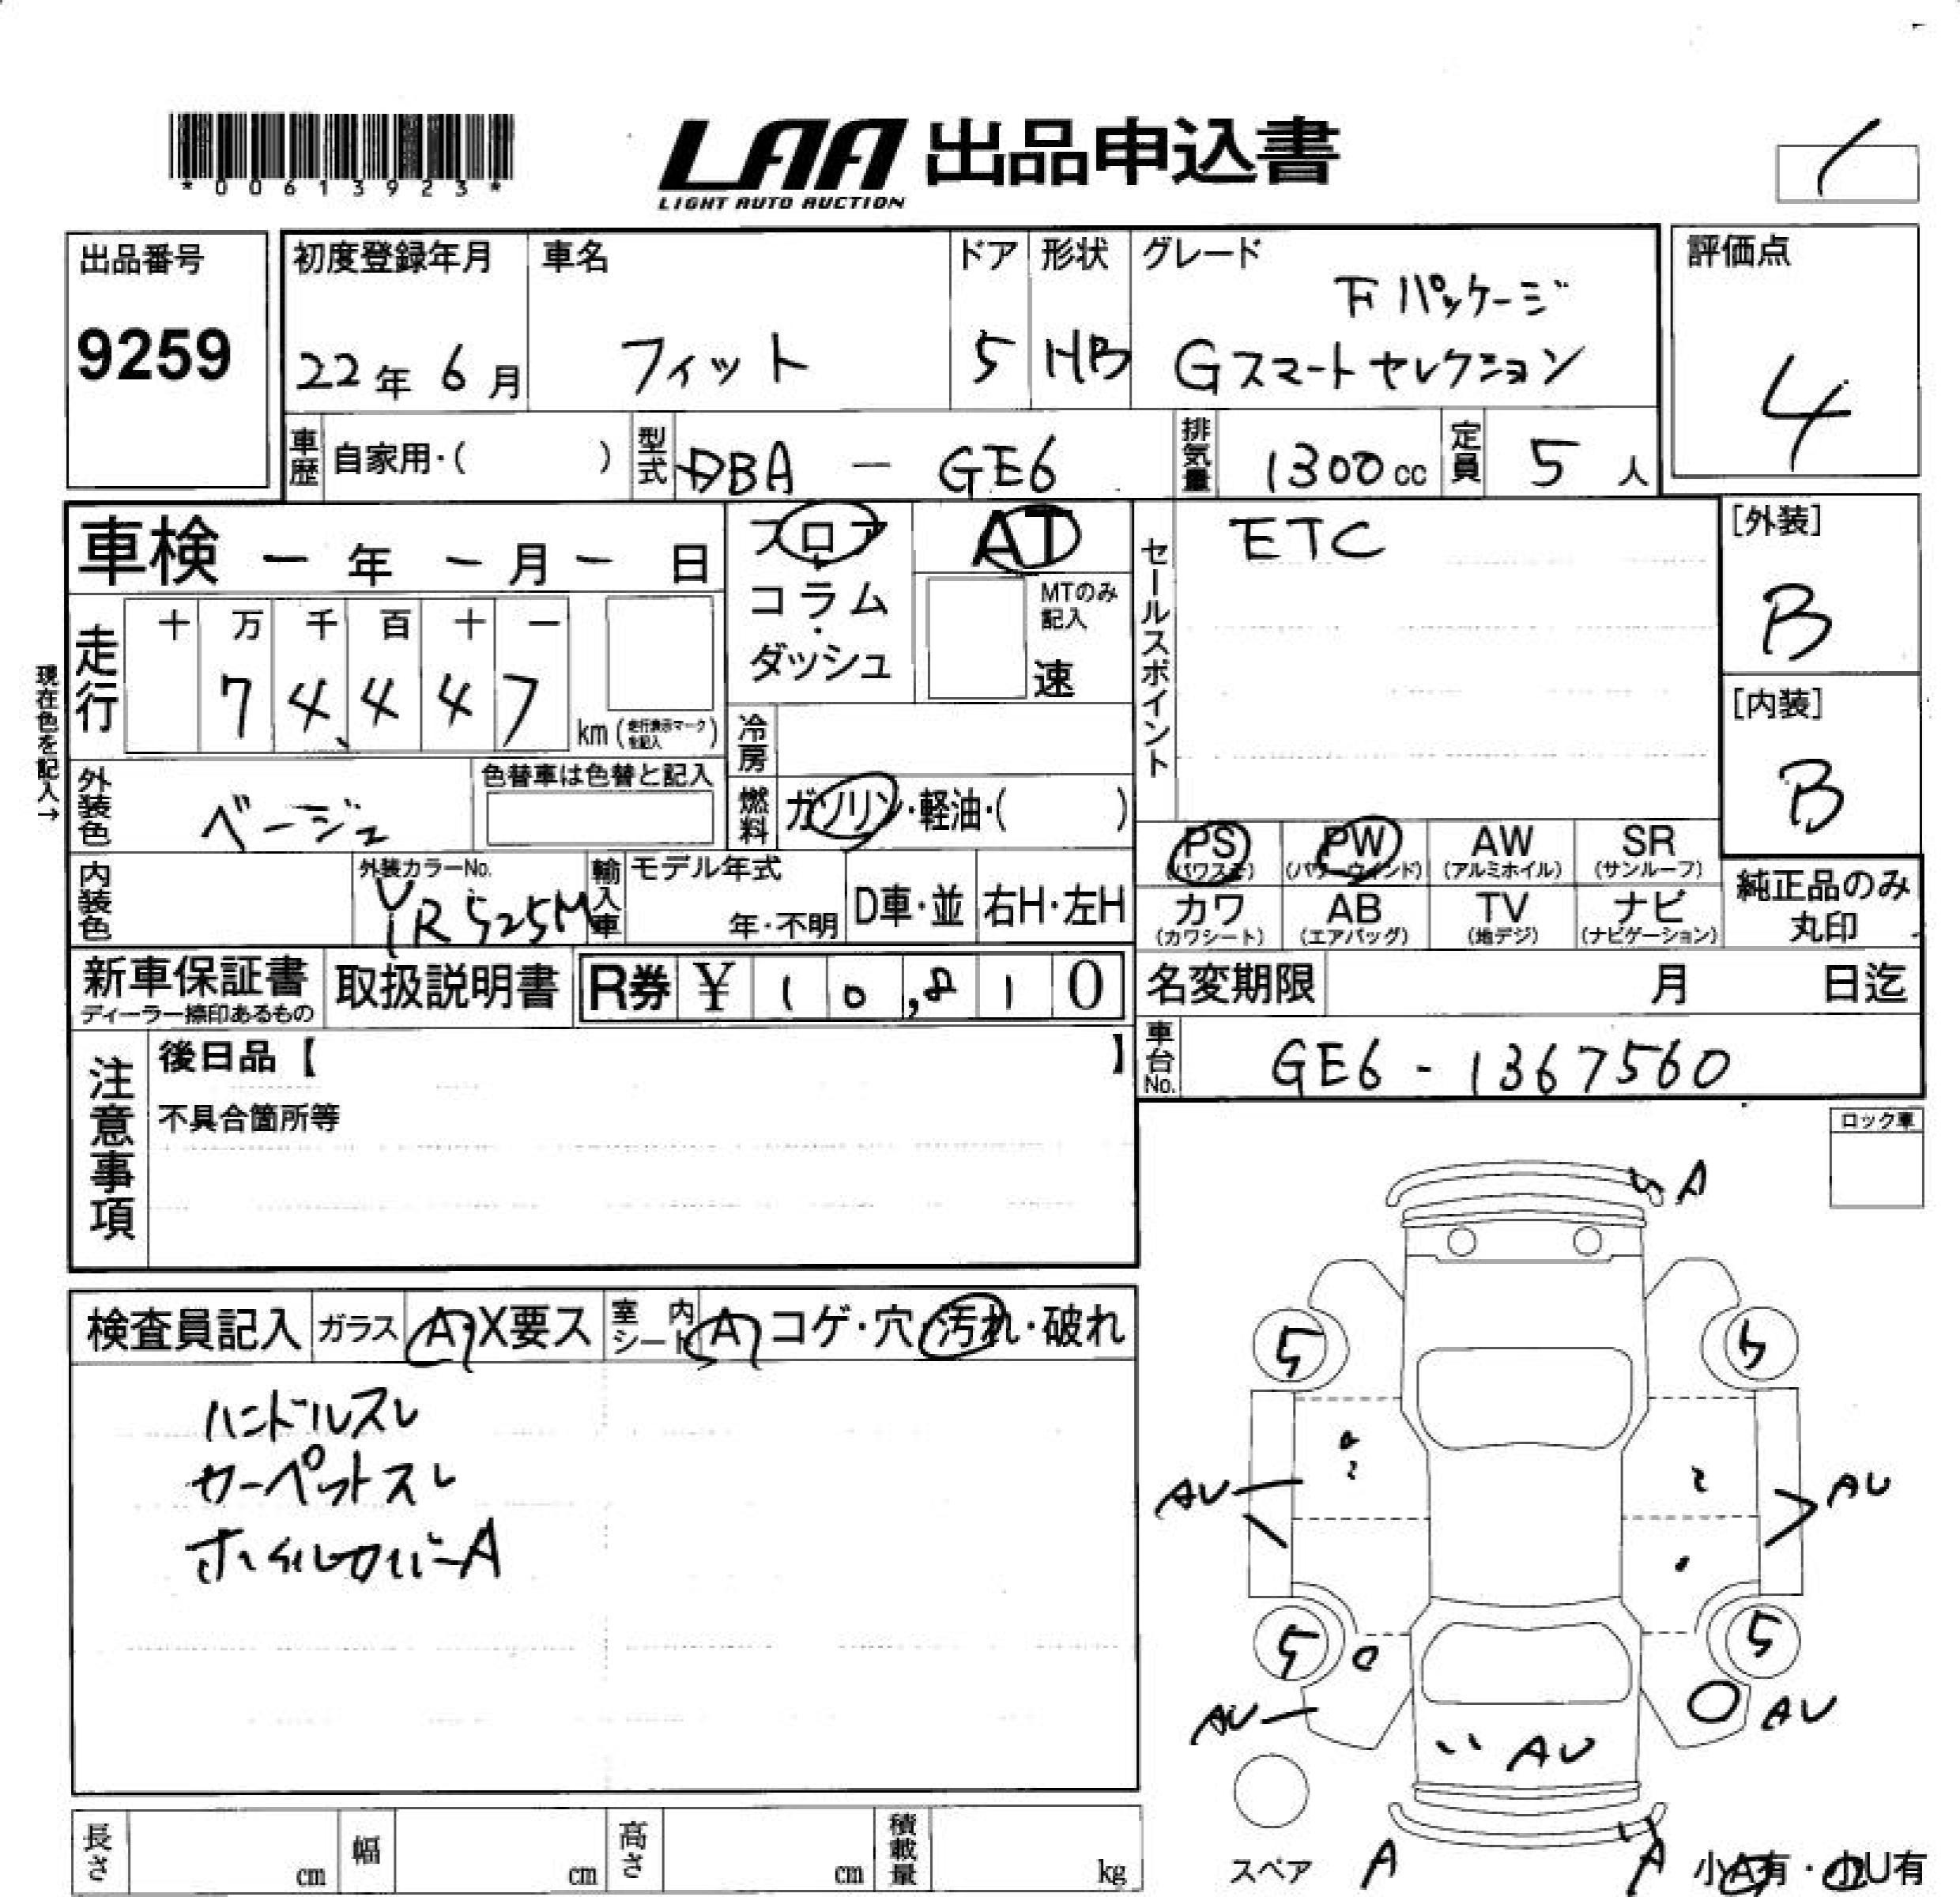 *00613923*
LAA 出品申込書
LIGHT AUTO AUCTION
出品番号
9259
初度登録年月
22年 6月
車名
フィット
ドア
5
形状
HB
グレード
Fパッケージ
Gスマートセレクション
評価点
4
車歴 自家用・( )
型式 DBA - GE6
排気量 1300cc
定員 5人
車検 ー年 ー月ー 日
フロア・コラム・ダッシュ
AT
MTのみ記入
速
セールスポイント
ETC
[外装]
B
[内装]
B
現在色を記入→
走行
十 万 千 百 十 一
7 4、4 4 7 km (走行表示マークを記入)
冷房
燃料 ガソリン・軽油・( )
外装色 ベージュ
色替車は色替と記入
内装色
外装カラーNo.
YR525M
輸入車 モデル年式
年・不明 D車・並 右H・左H
PS (パワステ) PW (パワーウインド) AW (アルミホイル) SR (サンルーフ)
カワ (カワシート) AB (エアバッグ) TV (地デジ) ナビ (ナビゲーション)
純正品のみ丸印
新車保証書
ディーラー捺印あるもの
取扱説明書
R券 ¥ 1 0,8 1 0
名変期限 月 日迄
車台No. GE6 - 1367560
注意事項
後日品【 】
不具合箇所等
ロック車
検査員記入 ガラス A・X要ス 室内シート A コゲ・穴・汚れ・破れ
ハンドルスレ
カーペットスレ
ホイルカバーA
A
5 5
AU AU
5 5
AU AU
AU
スペア A A 小A有・小U有
長さ cm 幅 cm 高さ cm 積載量 kg